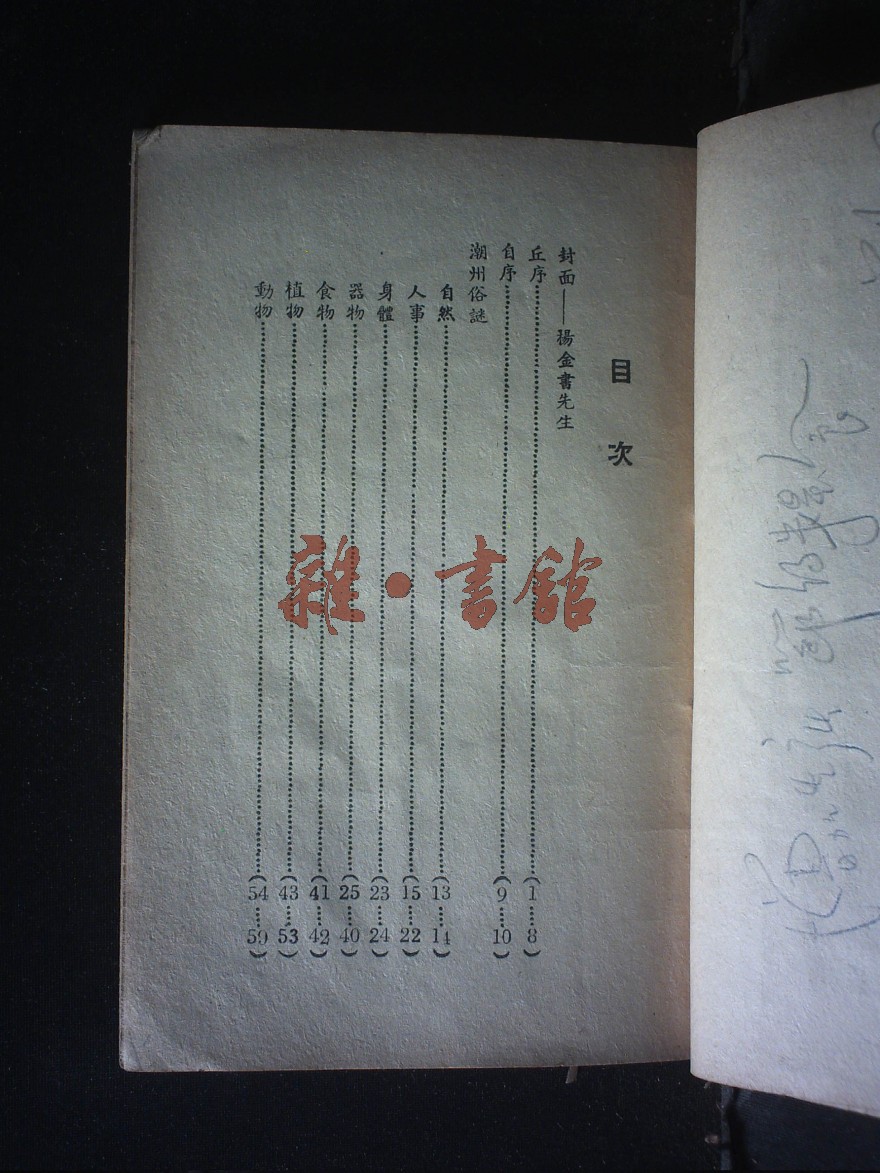 目次
封面——揚金書先生
丘序……(1……8)
自序……(9……10)
潮州俗謎
自然……(13……14)
人事……(15……22)
身體……(23……24)
器物……(25……40)
食物……(41……42)
植物……(43……53)
動物……(54……59)
雜·書館